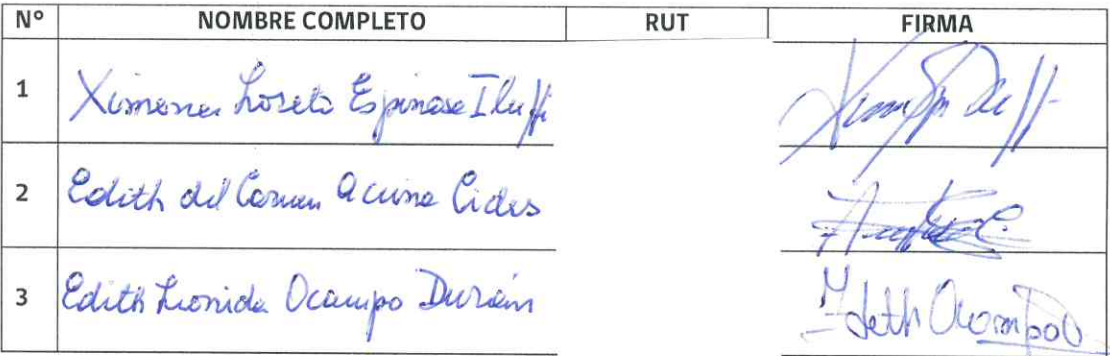 Nº NOMBRE COMPLETO RUT FIRMA
1 Ximena Loreto Espinosa Iluffi
2 Edith del Carmen Acuna Cides
3 Edith Leonida Ocampo Durán Edeth Ocampo D.